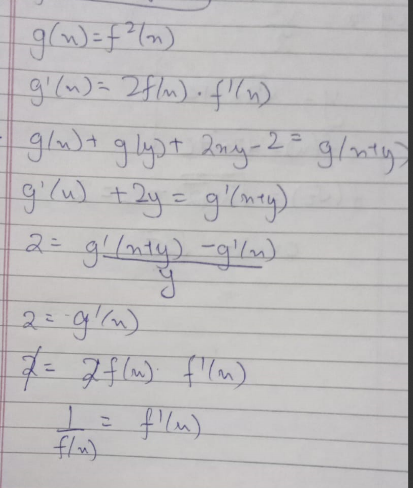 g(x) = f²(x)
g'(x) = 2f(x) · f'(x)
g(x) + g(y) + 2xy - 2 = g(x+y)
g'(x) + 2y = g'(x+y)
2 = g'(x+y) - g'(x) / y
2 = g'(x)
2 = 2f(x) · f'(x)
1 / f(x) = f'(x)